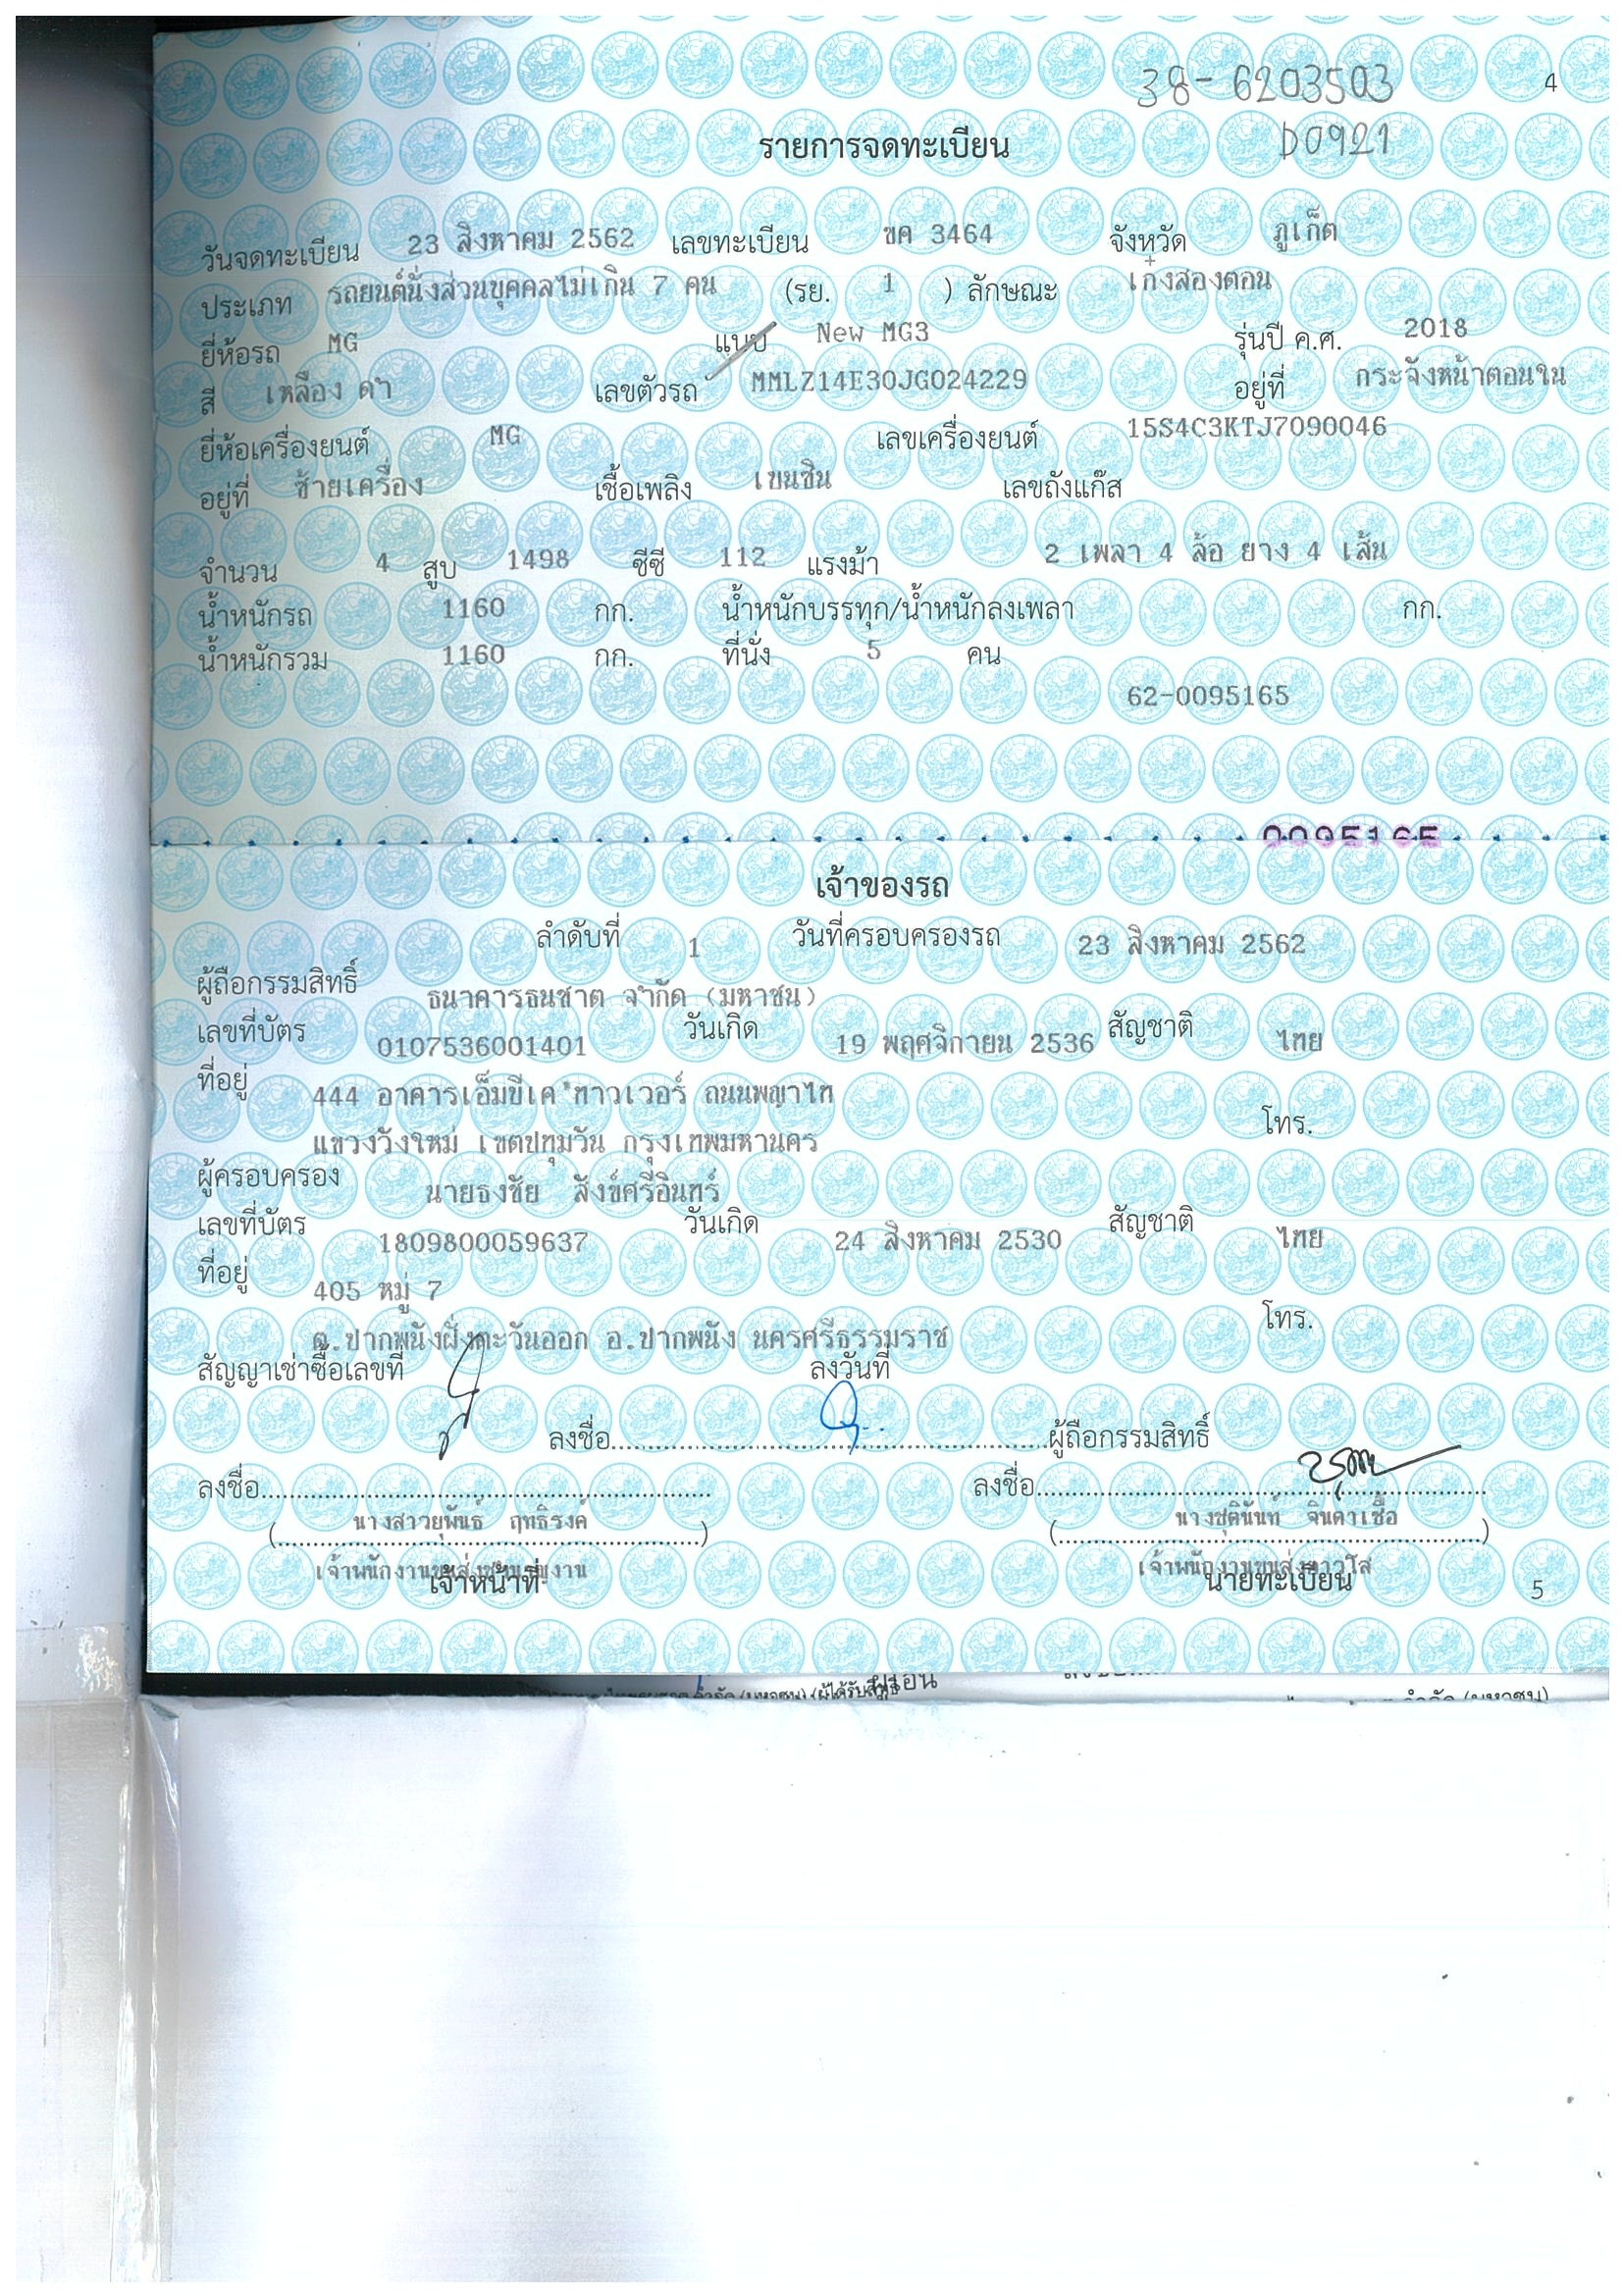 38-6203503
4
D0921
รายการจดทะเบียน
วันจดทะเบียน 23 สิงหาคม 2562 เลขทะเบียน ขค 3464 จังหวัด ภูเก็ต
ประเภท รถยนต์นั่งส่วนบุคคลไม่เกิน 7 คน (รย. 1 ) ลักษณะ เก๋งสองตอน
ยี่ห้อรถ MG แบบ New MG3 รุ่นปี ค.ศ. 2018
สี เหลือง ดำ เลขตัวรถ MMLZ14E30JG024229 อยู่ที่ กระจังหน้าตอนใน
ยี่ห้อเครื่องยนต์ MG เลขเครื่องยนต์ 15S4C3KTJ7090046
อยู่ที่ ซ้ายเครื่อง เชื้อเพลิง เบนซิน เลขถังแก๊ส
จำนวน 4 สูบ 1498 ซีซี 112 แรงม้า 2 เพลา 4 ล้อ ยาง 4 เส้น
น้ำหนักรถ 1160 กก. น้ำหนักบรรทุก/น้ำหนักลงเพลา กก.
น้ำหนักรวม 1160 กก. ที่นั่ง 5 คน
62-0095165
0095165
เจ้าของรถ
ลำดับที่ 1 วันที่ครอบครองรถ 23 สิงหาคม 2562
ผู้ถือกรรมสิทธิ์ ธนาคารธนชาต จำกัด (มหาชน)
เลขที่บัตร 0107536001401 วันเกิด 19 พฤศจิกายน 2536 สัญชาติ ไทย
ที่อยู่ 444 อาคารเอ็มบีเค ทาวเวอร์ ถนนพญาไท
แขวงวังใหม่ เขตปทุมวัน กรุงเทพมหานคร โทร.
ผู้ครอบครอง นายธงชัย สังข์ศรีอินทร์
เลขที่บัตร 1809800059637 วันเกิด 24 สิงหาคม 2530 สัญชาติ ไทย
ที่อยู่ 405 หมู่ 7
ต.ปากพนังฝั่งตะวันออก อ.ปากพนัง นครศรีธรรมราช โทร.
สัญญาเช่าซื้อเลขที่ ลงวันที่
ลงชื่อ ผู้ถือกรรมสิทธิ์
ลงชื่อ ลงชื่อ
(นางสาวยุพันธ์ ฤทธิรงค์) (นางชุตินันท์ จินดาเชื้อ)
เจ้าพนักงานขนส่งชำนาญงาน เจ้าพนักงานขนส่งอาวุโส
เจ้าหน้าที่ นายทะเบียน
5
จำกัด (มหาชน)